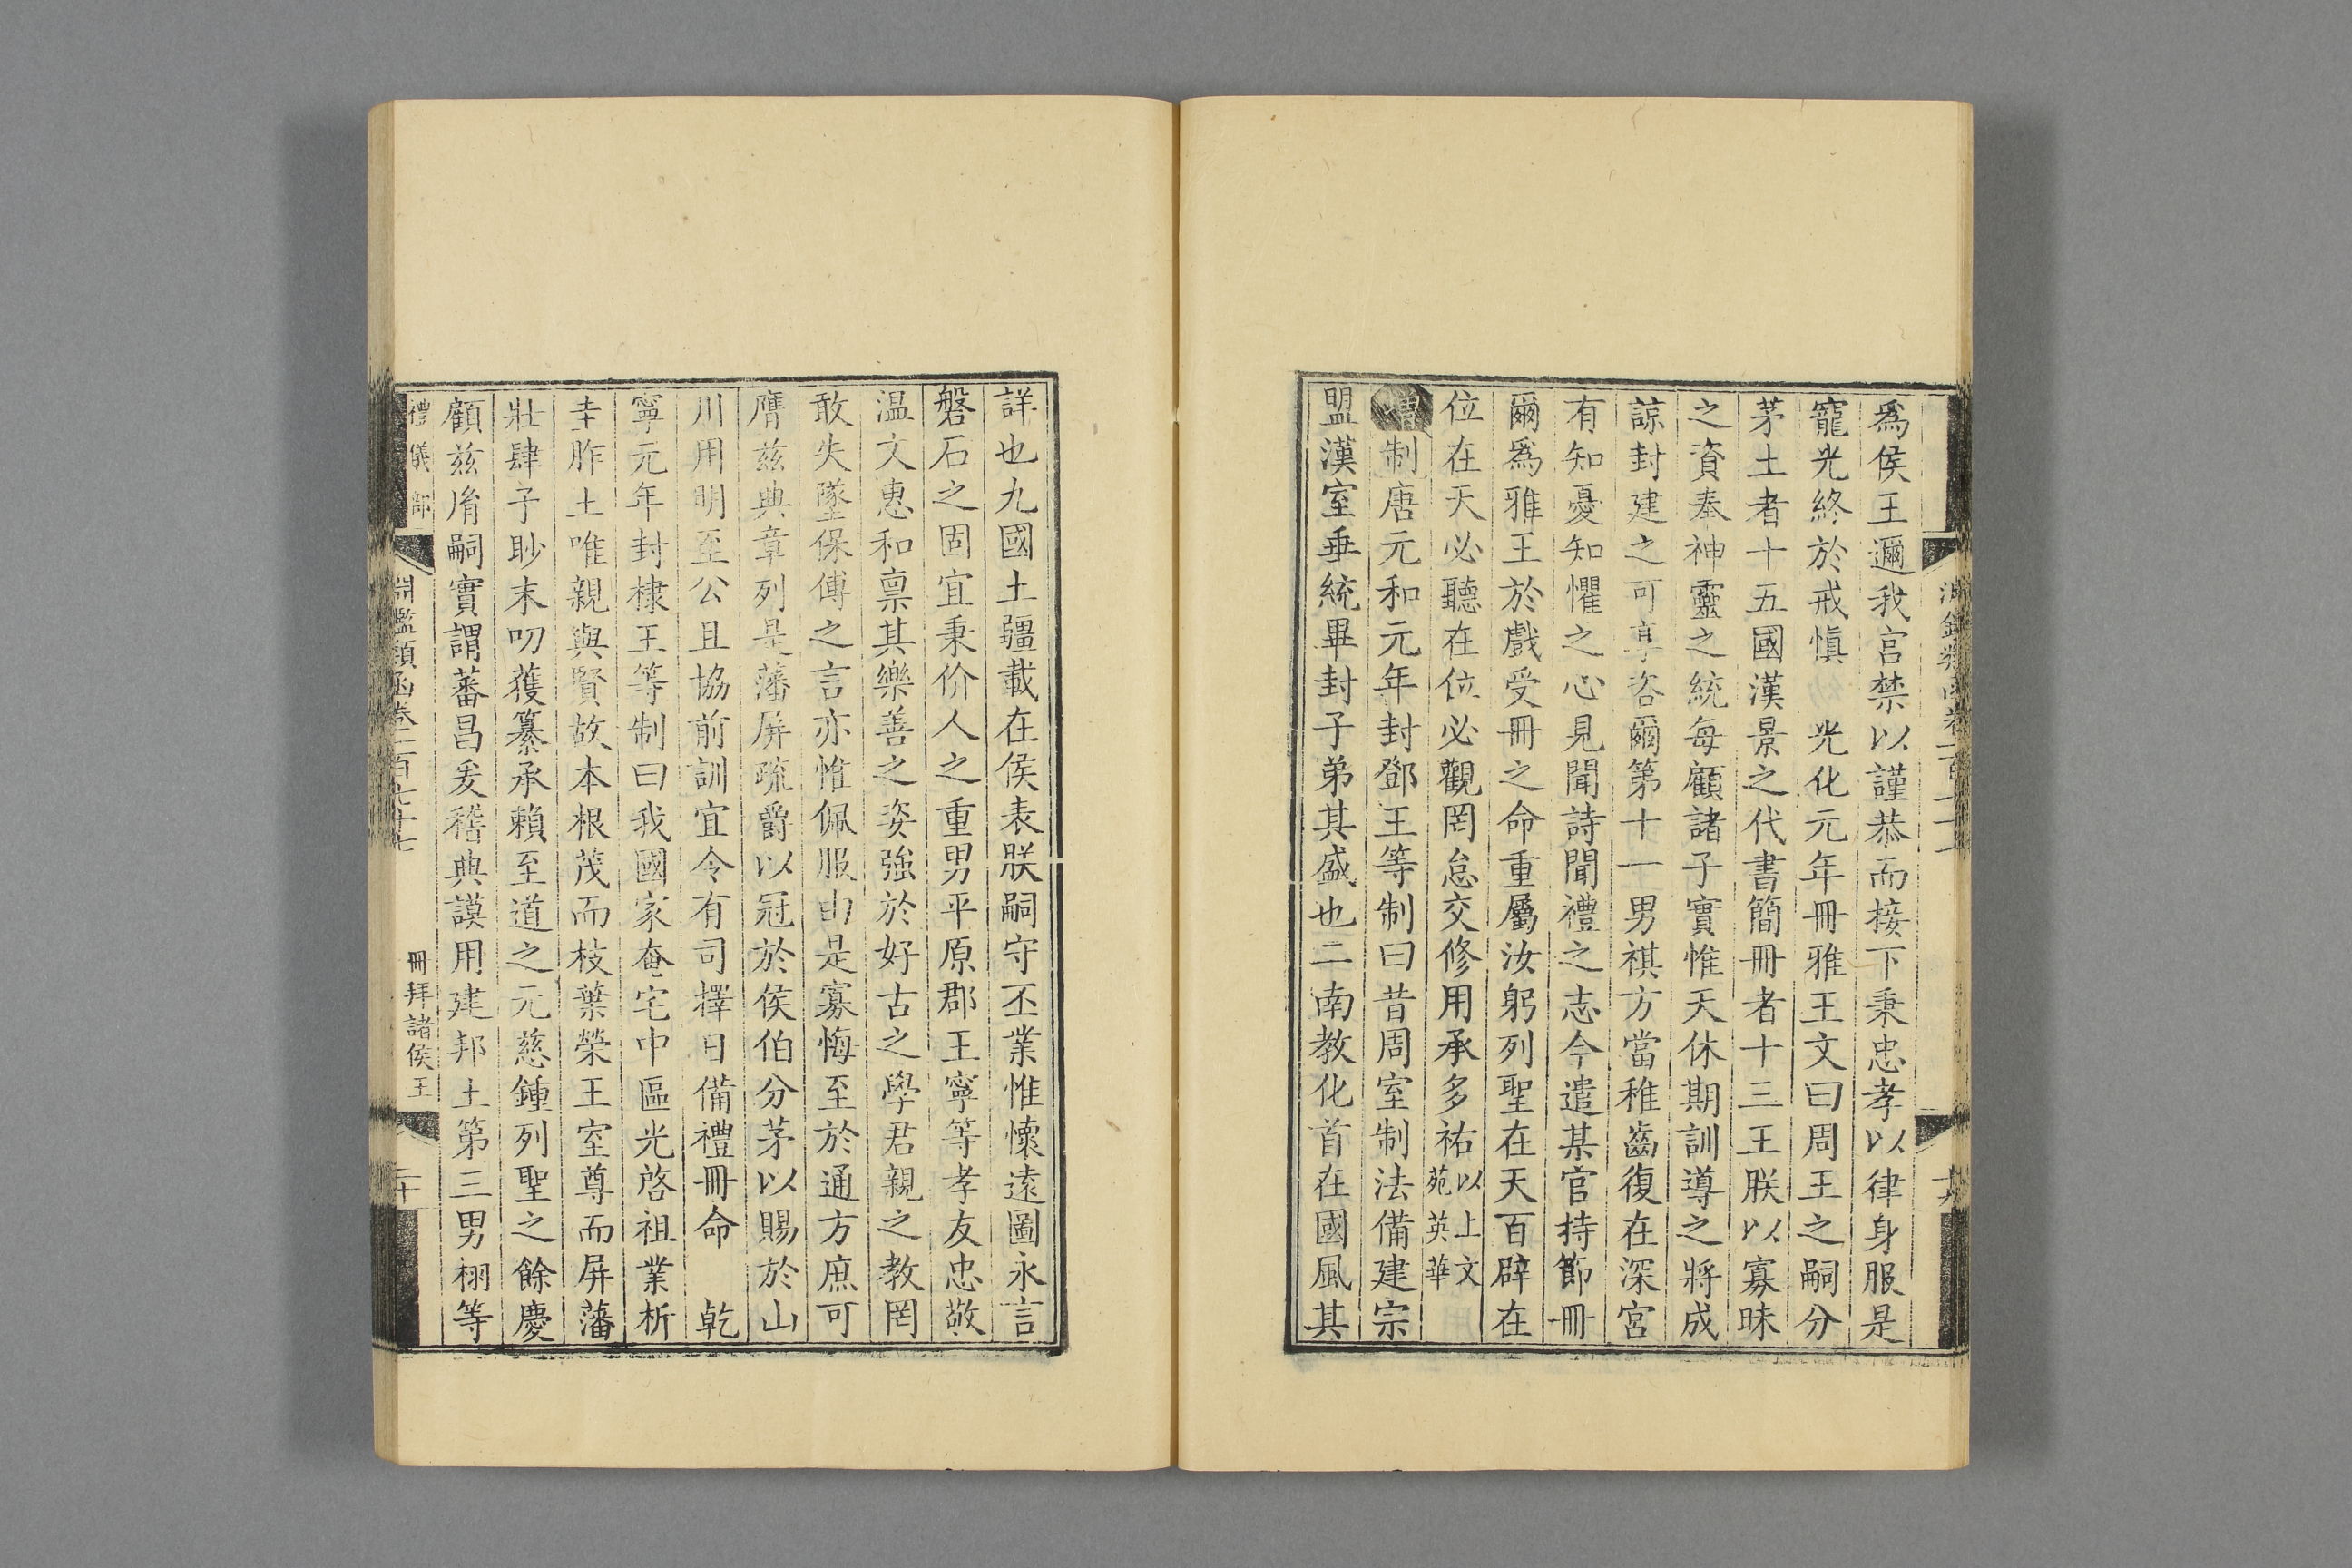 爲侯王邇我宮禁以謹恭而接下秉忠孝以律身服是
寵光終於戒慎 光化元年冊雅王文曰周王之嗣分
茅土者十五國漢景之代書簡冊者十三王朕以寡昧
之資奉神靈之統每顧諸子實惟天休期訓導之將成
諒封建之可享咨爾第十一男禛方當稚齒復在深宮
有知憂知懼之心見聞詩聞禮之志今遣某官持節冊
爾爲雅王於戲受冊之命重屬汝躬列聖在天百辟在
位在天必聽在位必觀罔怠交修用承多祐以上文苑英華
增制唐元和元年封鄧王等制曰昔周室制法備建宗
盟漢室垂統畢封子弟其盛也二南教化首在國風其
詳也九國土疆載在侯表朕嗣守丕業惟懷遠圖永言
磐石之固宜秉价人之重男平原郡王寧等孝友忠敬
温文惠和禀其樂善之姿強於好古之學君親之教罔
敢失墜保傅之言亦惟佩服由是寡悔至於通方庶可
膺茲典章列是藩屏疏爵以冠於侯伯分茅以賜於山
川用明至公且協前訓宜令有司擇日備禮冊命 乾
寧元年封棣王等制曰我國家奄宅中區光啓祖業析
圭胙土唯親與賢故本根茂而枝葉榮王室尊而屏藩
壯肆予眇末叨獲纂承賴至道之元慈鍾列聖之餘慶
顧茲胤嗣實謂蕃昌爰稽典謨用建邦土第三男栩等
禮儀部
淵鑑類函卷二百七十七
冊拜諸侯王
二十